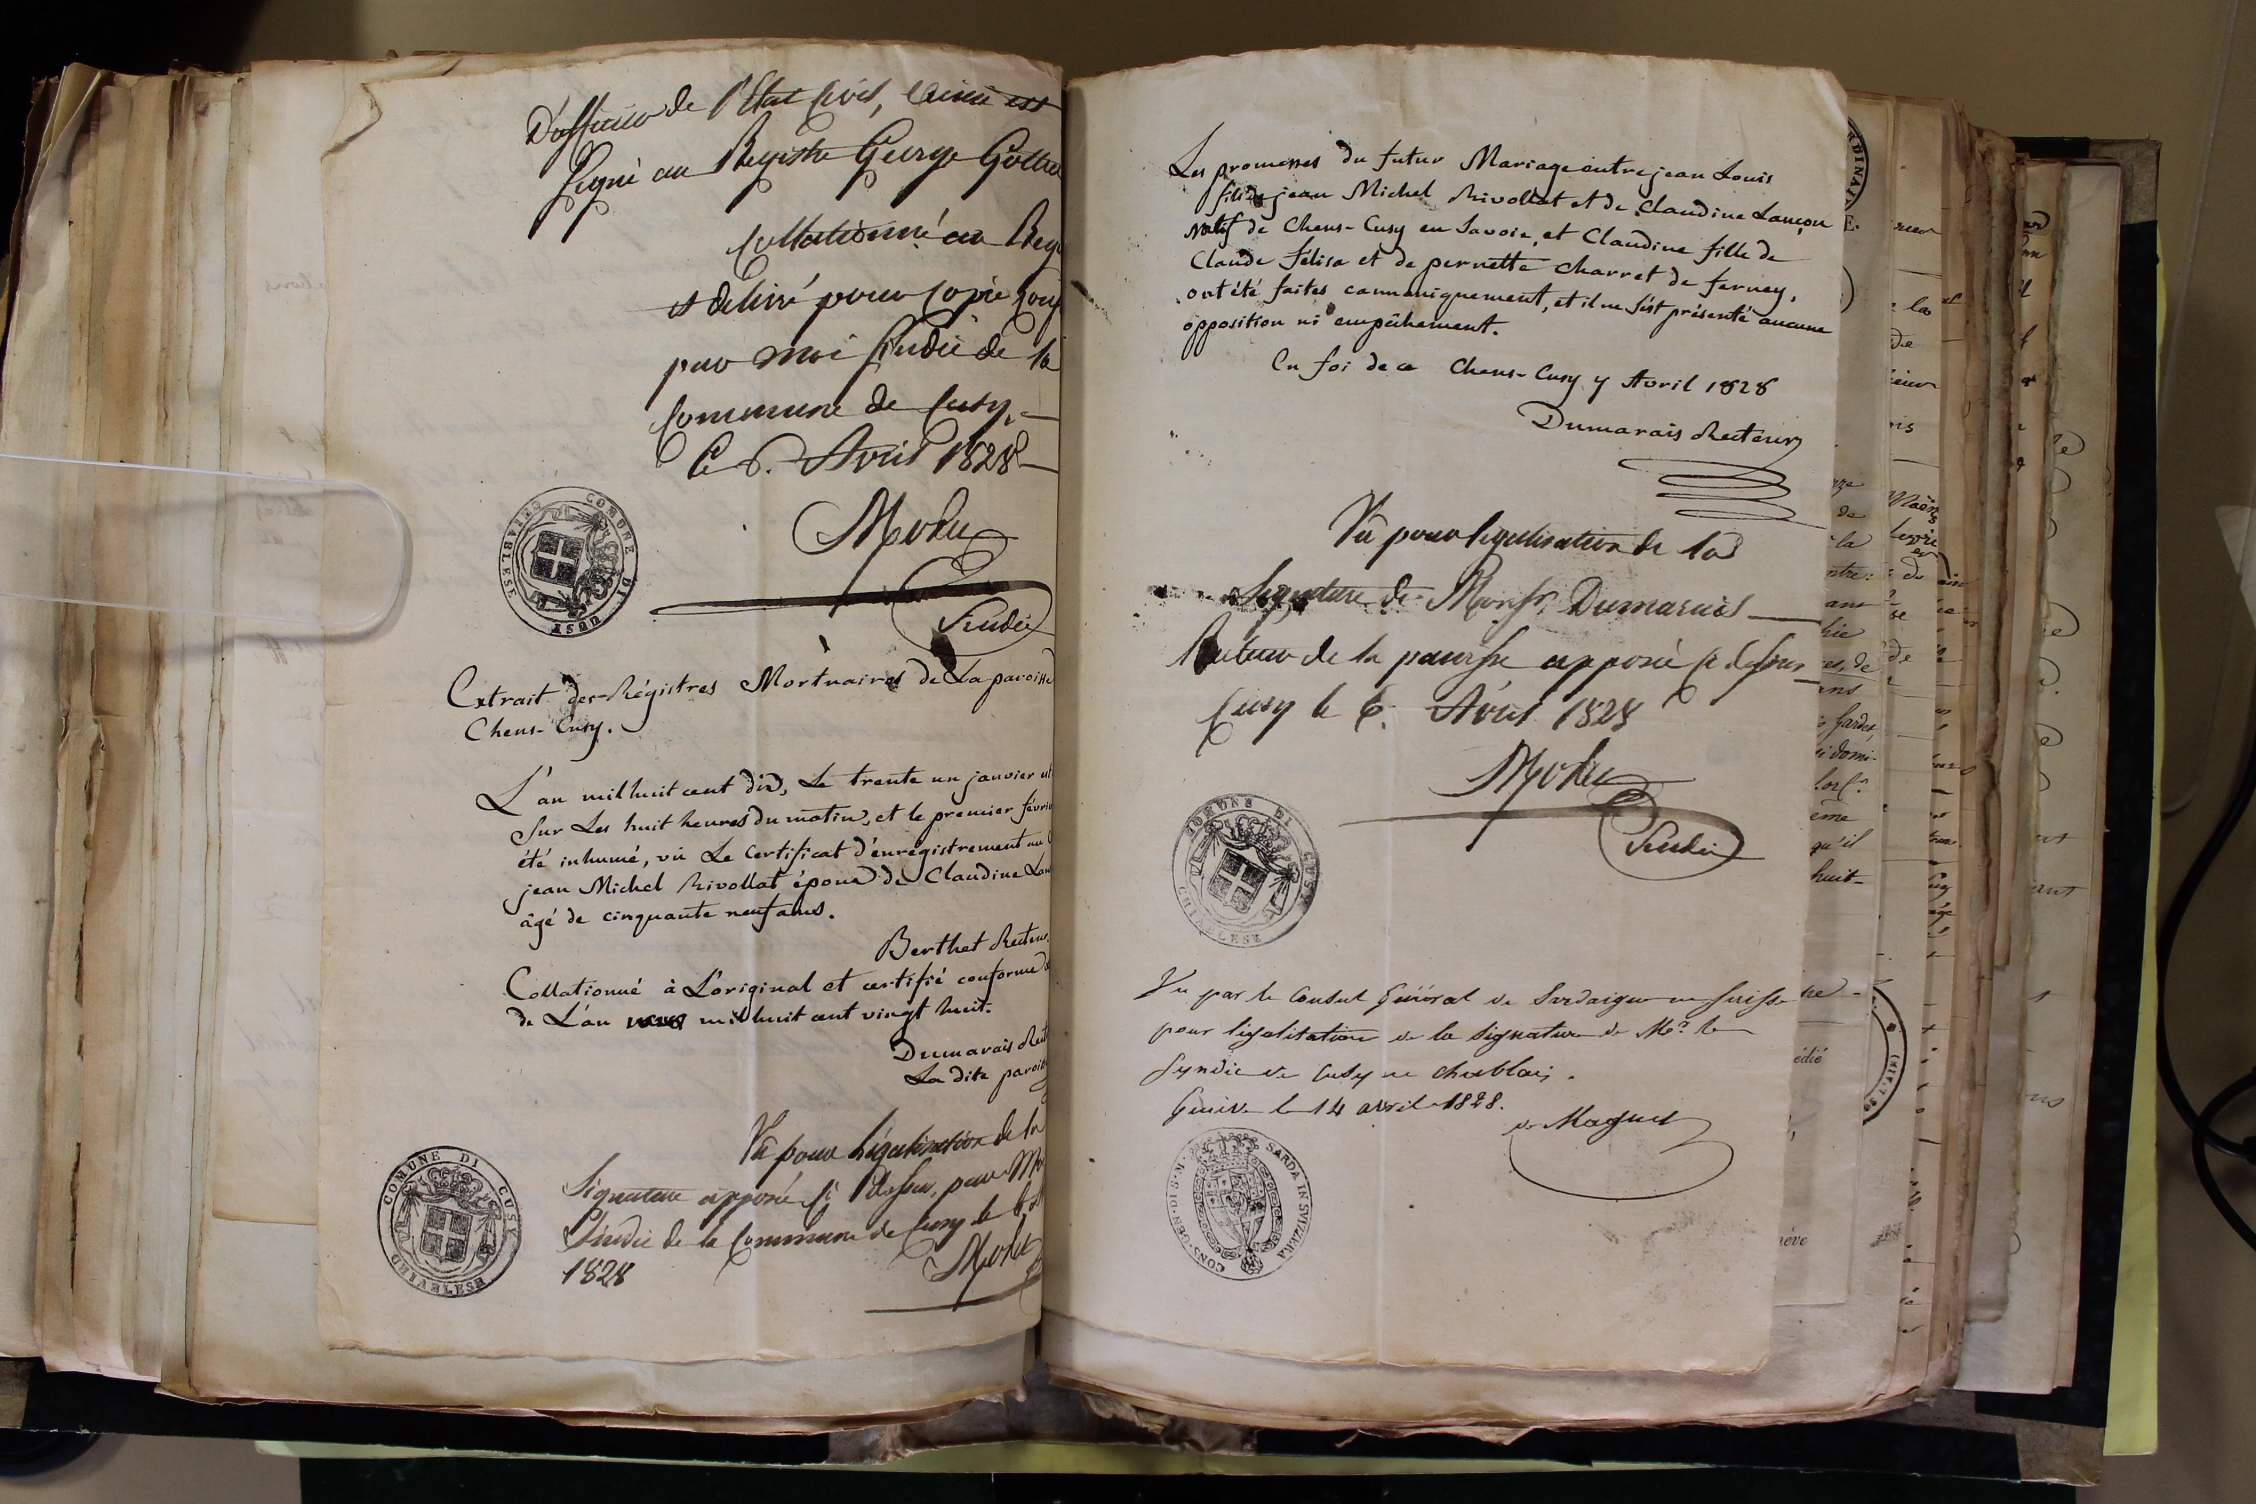 D'officier de l'Etat Civil, Ainsi est
Signé au Registre George
Collationné au Reg
et delivré pour Copie
par moi Sindic de la
Commune de Cusy,
Ce 6. Avril 1828
COMUNE DI CUSY
CHIABLESE
Sindic
Extrait des Régistres Mortuaires de La paroisse
Chens-Cusy.
L'an mil huit cent dix, Le trente un janvier
Sur Les huit heures du matin, et le premier févri
été inhumé, vû Le Certificat d'enregistrement au
jean Michel Rivollat époux de Claudine Lan
âgé de cinquante neuf ans.
Berthet Recteur
Collationné à L'original et certifié conforme
de L'an mil huit cent vingt huit.
Dumarais Rect
La dite paroiss
Vû pour Légalisation de la
Signature apposée Ci dessus, par M
Sindic de la Commune de Cusy le 6
1828
COMUNE DI CUSY
Les promesses du futur Mariage entre jean Louis
fils de jean Michel Rivollat et de Claudine Lançon
natif de Chens-Cusy en Savoie, et Claudine fille de
Claude Félisa et de pernette Charret de ferney,
ont été faites cannoniquement, et il ne s'est présenté aucune
opposition ni empêchement.
En foi de ce Chens-Cusy 7 Avril 1828
Dumarais Recteur
Vû pour légalisation de la
Signature de Monsr. Dumarais
Recteur de la paroisse apposée Ci dessus
Cusy le 6. Avril 1828
Sindic
COMUNE DI CUSY
CHIABLESE
Vu par le Consul Général de Sardaigne en Suisse
pour légalisation de la signature de Mr. le
Syndic de Cusy en Chablais.
Genève le 14 avril 1828.
de Magny
CONS. GEN. DI S. M. SARDA IN SVIZZERA